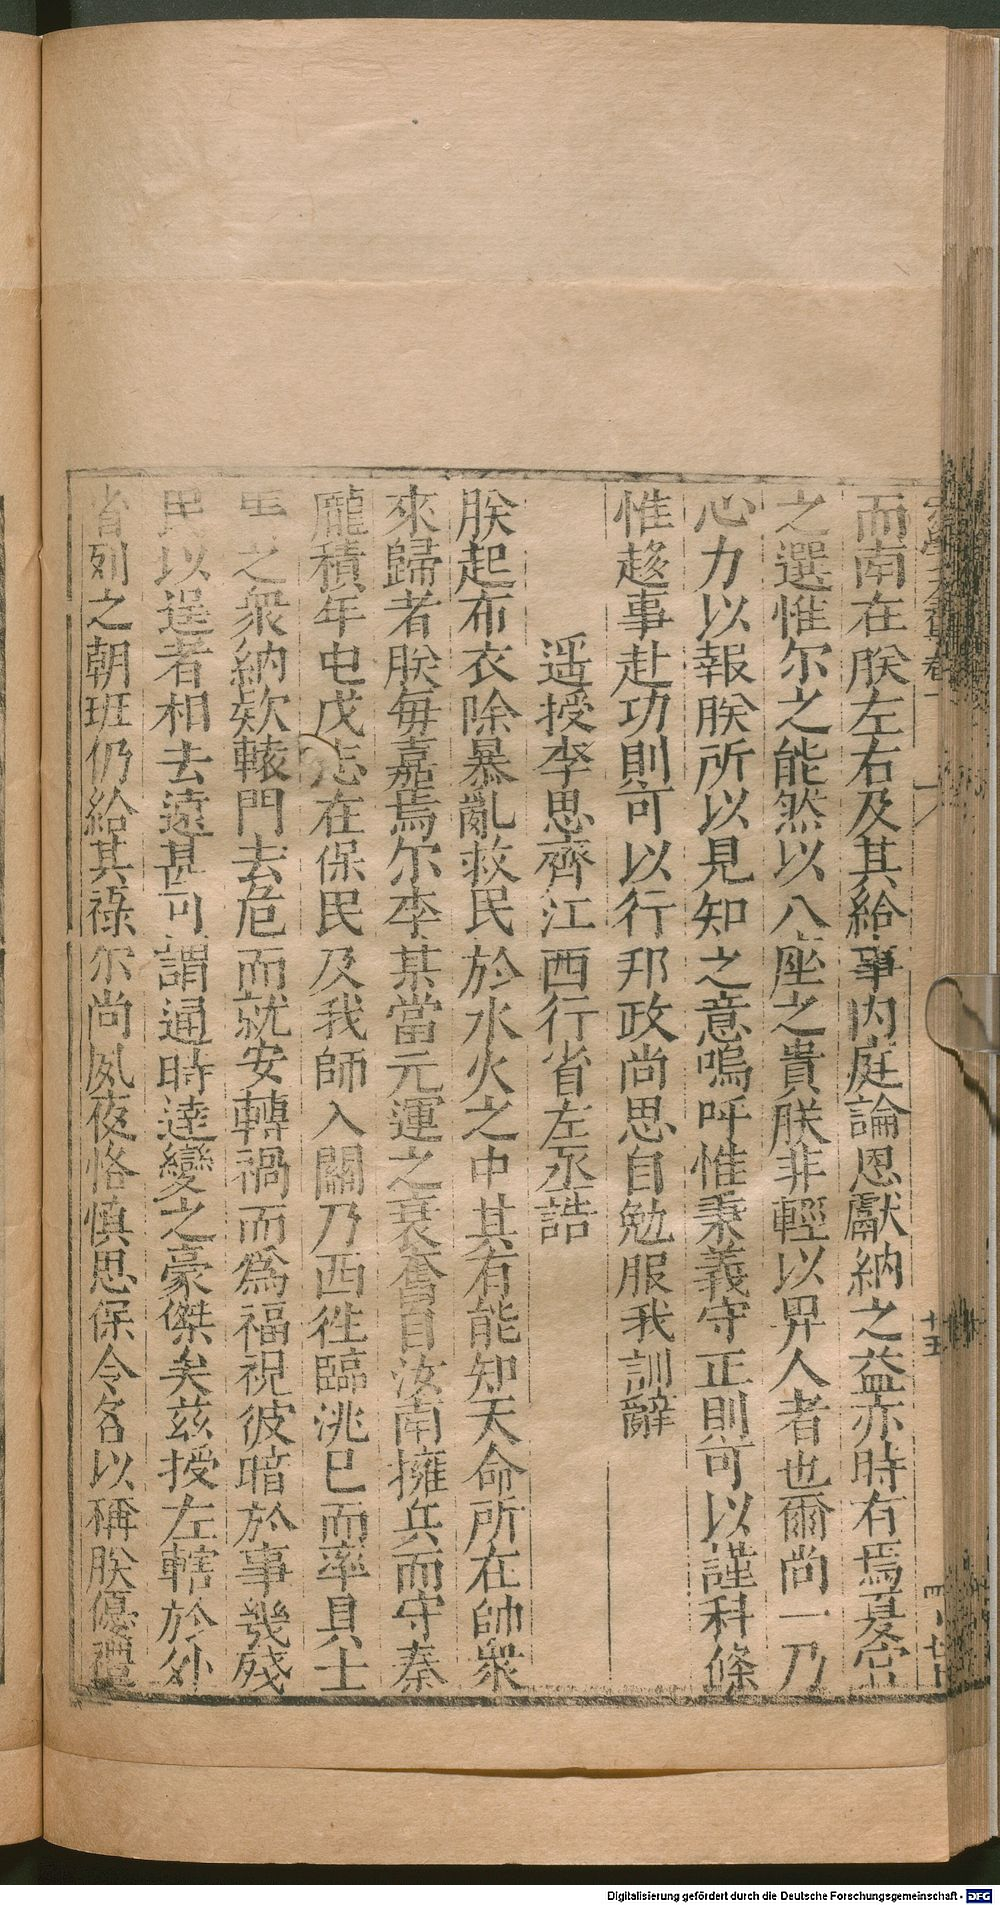 而南在朕左右及其給事内庭論恩獻納之益亦時有焉夏官
之選惟尔之能然以八座之貴朕非輕以畀人者也爾尚一乃
心力以報朕所以見知之意嗚呼惟秉義守正則可以謹科條
惟趍事赴功則可以行邦政尚思自勉服我訓辭
遥授李思齊江西行省左丞誥
朕起布衣除暴亂救民於水火之中其有能知天命所在帥衆
來歸者朕每嘉焉尔李某當元運之衰奮自汝南擁兵而守秦
隴積年屯戍志在保民及我師入關乃西徃臨洮已而率其士
之衆納欵轅門去危而就安轉禍而爲福視彼暗於事幾殘
民以逞者相去遠甚可謂通時達變之豪傑矣茲授左轄於外
省列之朝班仍給其祿尔尚夙夜恪慎思保令名以稱朕優禮
十五
Digitalisierung gefördert durch die Deutsche Forschungsgemeinschaft - DFG